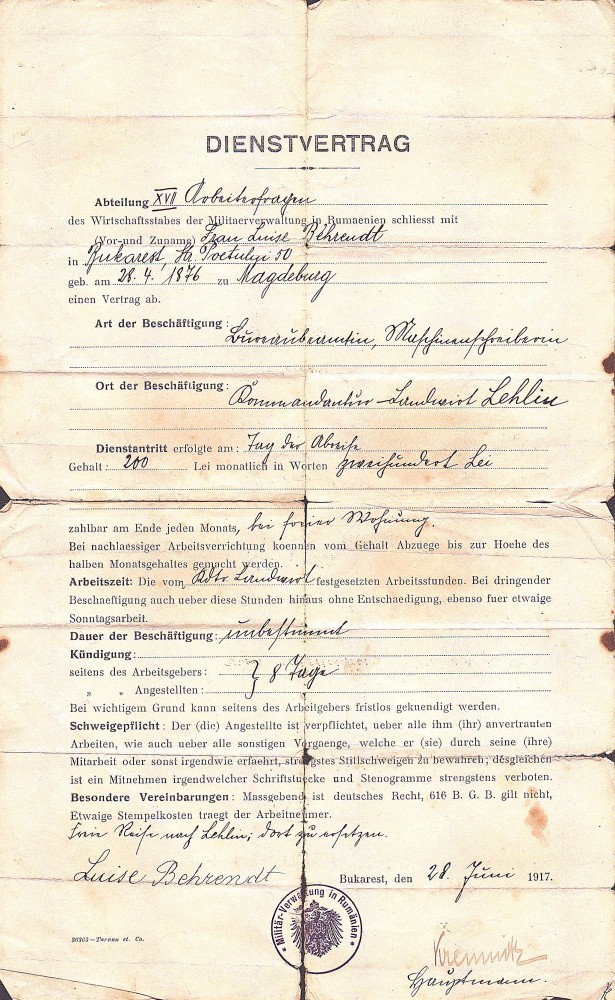 DIENSTVERTRAG
Abteilung XVII Arbeiterfragen
des Wirtschaftsstabes der Militaerverwaltung in Rumaenien schliesst mit
(Vor-und Zuname) Frau Luise Behrendt
in Bukarest, Str. Poetului 50
geb. am 28. 4. 1876 zu Magdeburg
einen Vertrag ab.
Art der Beschäftigung: Bureaubeamtin, Maschinenschreiberin
Ort der Beschäftigung: Kommandantur-Landwirt Lehliu
Dienstantritt erfolgte am: Tag der Abreise
Gehalt: 200 Lei monatlich in Worten zweihundert Lei
zahlbar am Ende jeden Monats, bei freier Wohnung.
Bei nachlaessiger Arbeitsverrichtung koennen vom Gehalt Abzuege bis zur Hoehe des
halben Monatsgehaltes gemacht werden.
Arbeitszeit: Die vom Kdtr Landwirt festgesetzten Arbeitsstunden. Bei dringender
Beschaeftigung auch ueber diese Stunden hinaus ohne Entschaedigung, ebenso fuer etwaige
Sonntagsarbeit.
Dauer der Beschäftigung: unbestimmt
Kündigung:
seitens des Arbeitsgebers: } 8 Tage
„ „ Angestellten:
Bei wichtigem Grund kann seitens des Arbeitgebers fristlos gekuendigt werden.
Schweigepflicht: Der (die) Angestellte ist verpflichtet, ueber alle ihm (ihr) anvertrauten
Arbeiten, wie auch ueber alle sonstigen Vorgaenge, welche er (sie) durch seine (ihre)
Mitarbeit oder sonst irgendwie erfaehrt, strengstes Stillschweigen zu bewahren; desgleichen
ist ein Mitnehmen irgendwelcher Schriftstuecke und Stenogramme strengstens verboten.
Besondere Vereinbarungen: Massgebend ist deutsches Recht, 616 B. G. B. gilt nicht,
Etwaige Stempelkosten traegt der Arbeitnehmer.
Freie Reise nach Lehliu, dort zu ersetzen.
Luise Behrendt Bukarest, den 28. Juni 1917.
* Militär-Verwaltung in Rumänien *
26363—Taranu et. Co.
Kremnitz
Hauptmann.